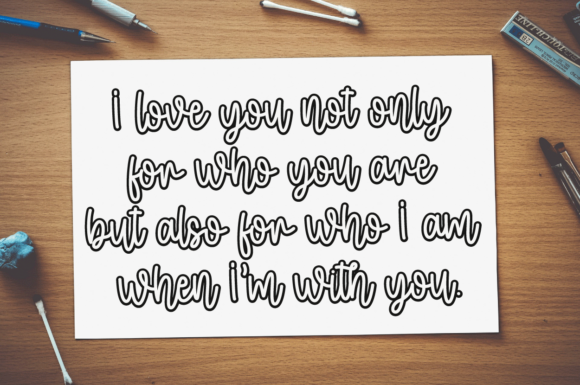 i love you not only
for who you are
but also for who i am
when i'm with you.